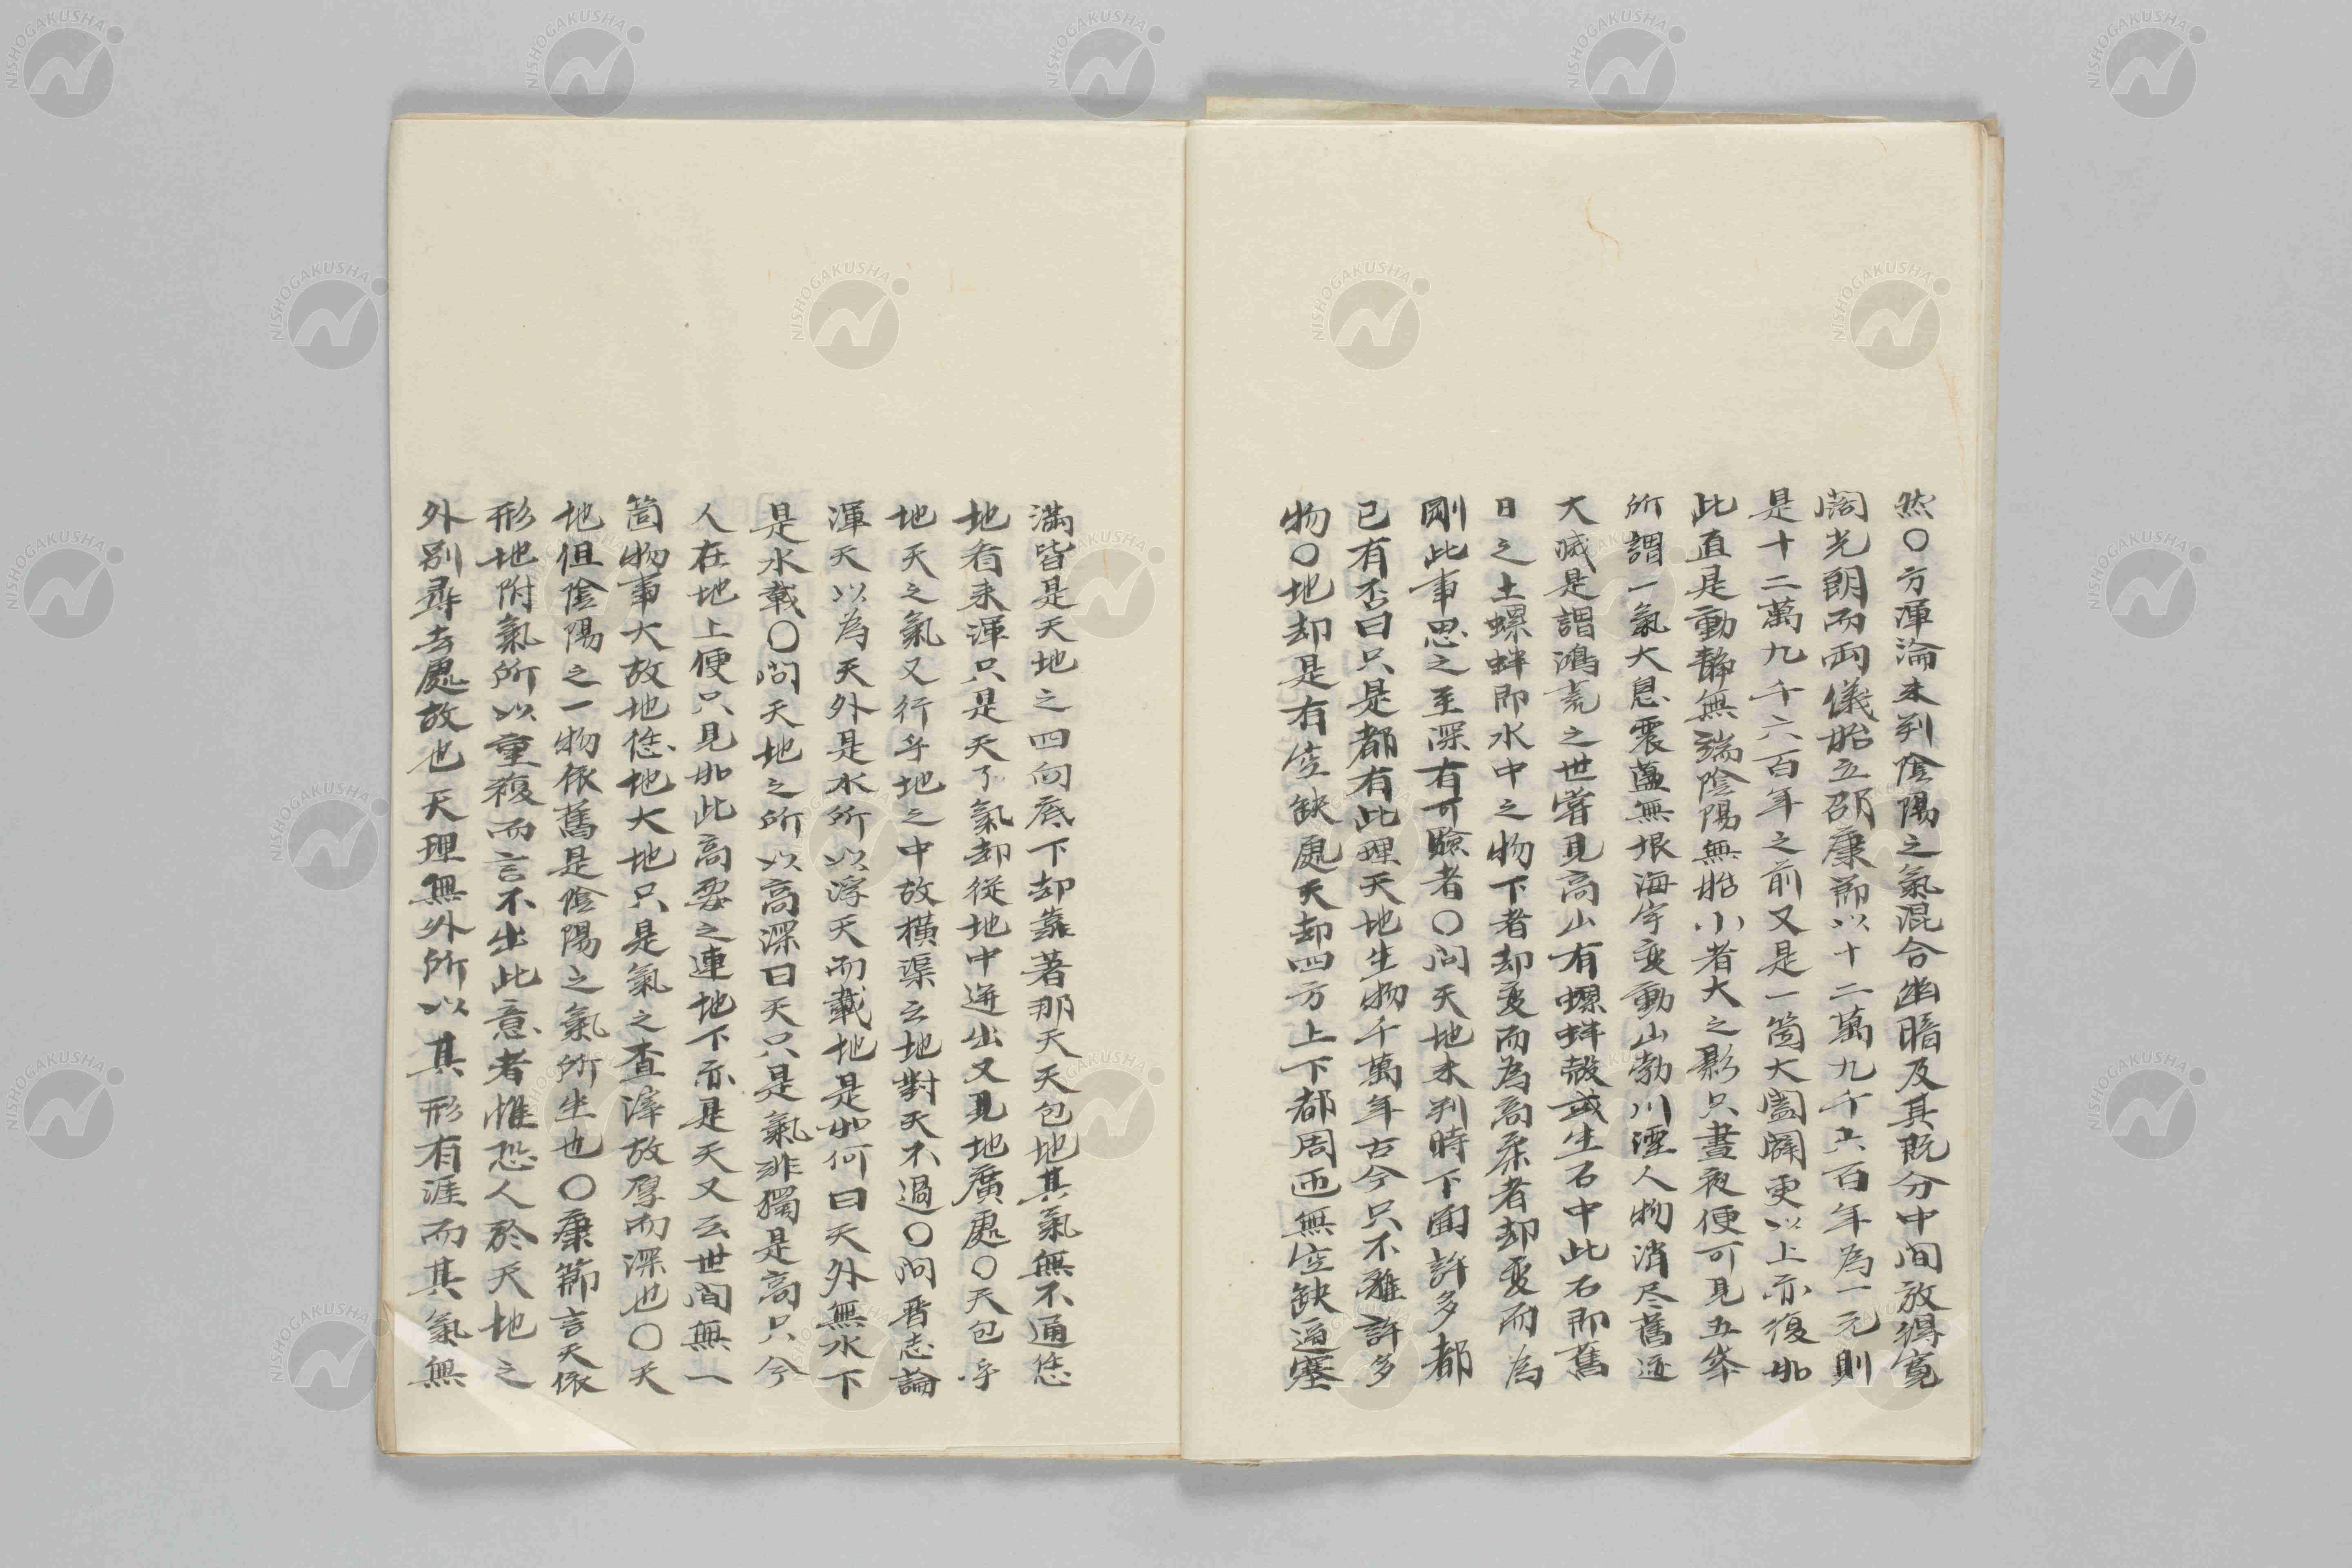 然〇方渾淪未判陰陽之氣混合幽暗及其既分中間放得寛
闊光朗而両儀始立邵康節以十二萬九千六百年為一元則
是十二萬九千六百年之前又是一箇大闔闢更以上亦復如
此直是動静無端陰陽無始小者大之影只晝夜便可見五峯
所謂一氣大息震蕩無垠海宇変動山勃川湮人物消尽舊迹
大滅是謂鴻荒之世嘗見高山有螺蚌殻或生石中此石即舊
日之土螺蚌即水中之物下者却変而為高柔者却変而為
剛此事思之至深有可驗者〇問天地未判時下面許多都
已有否曰只是都有此理天地生物千萬年古今只不離許多
物〇地却是有空缺處天却四方上下都周匝無空缺逼塞
満皆是天地之四向底下却靠著那天天包地其氣無不通恁
地看来渾只是天了氣却従地中迸出又見地廣處〇天包乎
地天之氣又行乎地之中故横渠云地對天不過〇問晋志論
渾天以為天外是水所以浮天而載地是如何曰天外無水下
是水載〇問天地之所以高深曰天只是氣非獨是高只今
人在地上便只見如此高要之連地下亦是天又云世間無一
箇物事大故地恁地大地只是氣之査滓故厚而深也〇天
地但陰陽之一物依舊是陰陽之氣所生也〇康節言天依
形地附氣所以重複而言不出此意者惟恐人於天地之
外別尋去處故也天理無外所以其形有涯而其氣無
NISHOGAKUSHA